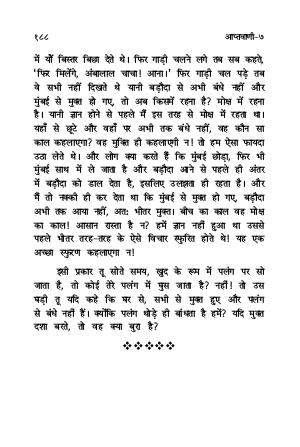 १८८ आप्तवाणी-७
में यों बिस्तर बिछा देते थे। फिर गाड़ी चलने लगे तब सब कहते,
'फिर मिलेंगे, अंबालाल चाचा! आना।' फिर गाड़ी चल पड़े तब
वे सभी नहीं दिखते थे यानी बड़ौदा से अभी बंधे नहीं और
मुंबई से मुक्त हो गए, तो अब किसमें रहना है? मोक्ष में रहना
है। यानी ज्ञान होने से पहले मैं इस तरह से मोक्ष में रहता था।
यहाँ से छूटे और वहाँ पर अभी तक बंधे नहीं, वह कौन सा
काल कहलाएगा? वह मुक्ति ही कहलाएगी न! तो हम ऐसा फायदा
उठा लेते थे। और लोग क्या करते हैं कि मुंबई छोड़ा, फिर भी
मुंबई साथ में ले जाता है और बड़ौदा आने से पहले ही अंतर
में बड़ौदा को डाल देता है, इसलिए उलझता ही रहता है। और
मैं तो नक्की ही कर देता था कि मुंबई से मुक्त हो गए, बड़ौदा
अभी तक आया नहीं, अतः भीतर मुक्त। बीच का काल वह मोक्ष
का काल! आसान रास्ता है न? हमें ज्ञान नहीं हुआ था उससे
पहले भीतर तरह-तरह के ऐसे विचार स्फुरित होते थे! यह एक
अच्छा स्फुरण कहलाएगा न!
इसी प्रकार तू सोते समय, खुद के रूम में पलंग पर सो
जाता है, तो कोई तेरे पलंग में घुस जाता है? नहीं! तो उस
घड़ी तू यदि कहे कि घर से, सभी से मुक्त हुए और पलंग
से बंधे नहीं हैं। क्योंकि पलंग थोड़े ही बांधता है हमें? यदि मुक्त
दशा बरते, तो वह क्या बुरा है?